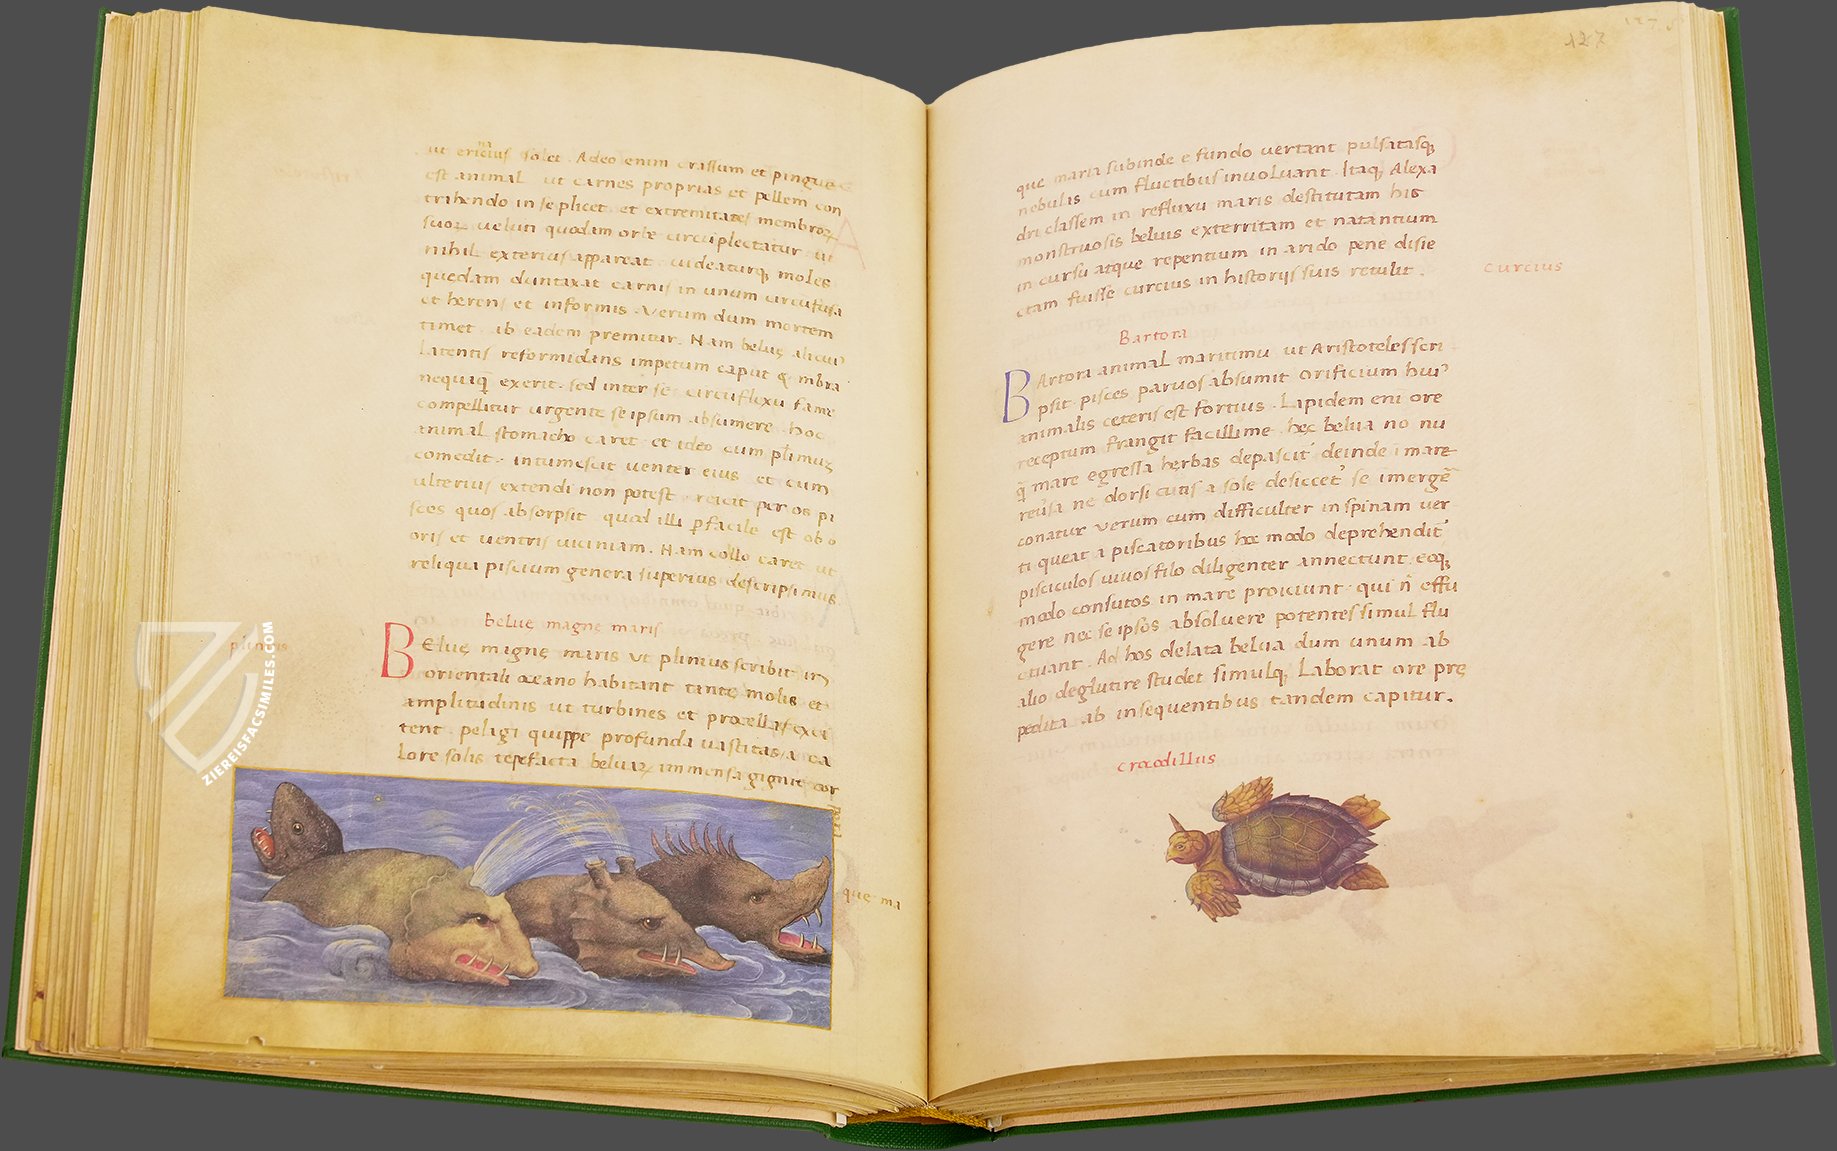 ut ericius solet. Adeo enim crassum et pingue
est animal ut carnes proprias et pellem con
trahendo in se plicet et extremitates membroꝝ
suoꝝ veluti quodam orbe circuplectatur ut
nihil exterius appareat videaturqꝫ moles
quędam duntaxat carnis in unum circufusa
et herens et informis. Verum dum mortem
timet ab eadem premitur. Nam belue alicuiꝰ
latentis reformidans impetum caput et mbra
nequaqȝ exerit. sed inter se circuflexu fame
compellitur urgente se ipsum absumere. Hoc
animal stomacho caret et ideo cum plimuȝ
comedit. intumescit venter eius et cum
ulterius extendi non potest reicit per os pi
sces quos absorpsit quod illi ꝑfacile est ob
oris et ventris viciniam. Nam collo caret ut
reliqua piscium genera superius descripsimus
Beluę magnę maris
plinius
BEluę magnę maris ut plinius scribit in
orientali oceano habitant tantę molis et
amplitudinis ut turbines et procellas exci
tent. pelagi quippe profunda vastitas
lore solis tepefacta beluaꝝ immensa gignit cor
que ma
ZIEREISFACSIMILES.COM
127
que maria subinde e fundo vertant pulsatasqꝫ
nebulis cum fluctibus involvant. Itaqꝫ Alexa
dri classem in refluxu maris destitutam his
monstruosis beluis exterritam et natantium
in cursu atque repentium in arido pene disie
ctam fuisse curcius in historijs suis retulit.
Curcius
Bartora
BArtora animal maritimu ut Aristoteles scri
psit pisces parvos absumit orificium huiꝰ
animalis ceteris est fortius. Lapidem eni ore
receptum frangit facillime. hęc belua no nu
q̄ mare egressa herbas depascit deinde i mare
reusa ne dorsi cutis a sole desiccet se imergē
conatur verum cum difficulter in spinam ver
ti queat a piscatoribus hoc modo deprehendit
pisciculos vivos filo diligenter annectunt eoqꝫ
modo consutos in mare proiciunt qui n̄ effu
gere nec se ipsos absolvere potentes simul flu
ctuant. Ad hos delata belua dum unum ab
alio deglutire studet simulqꝫ laborat ore prę
pedita ab insequentibus tandem capitur.
Crocodillus